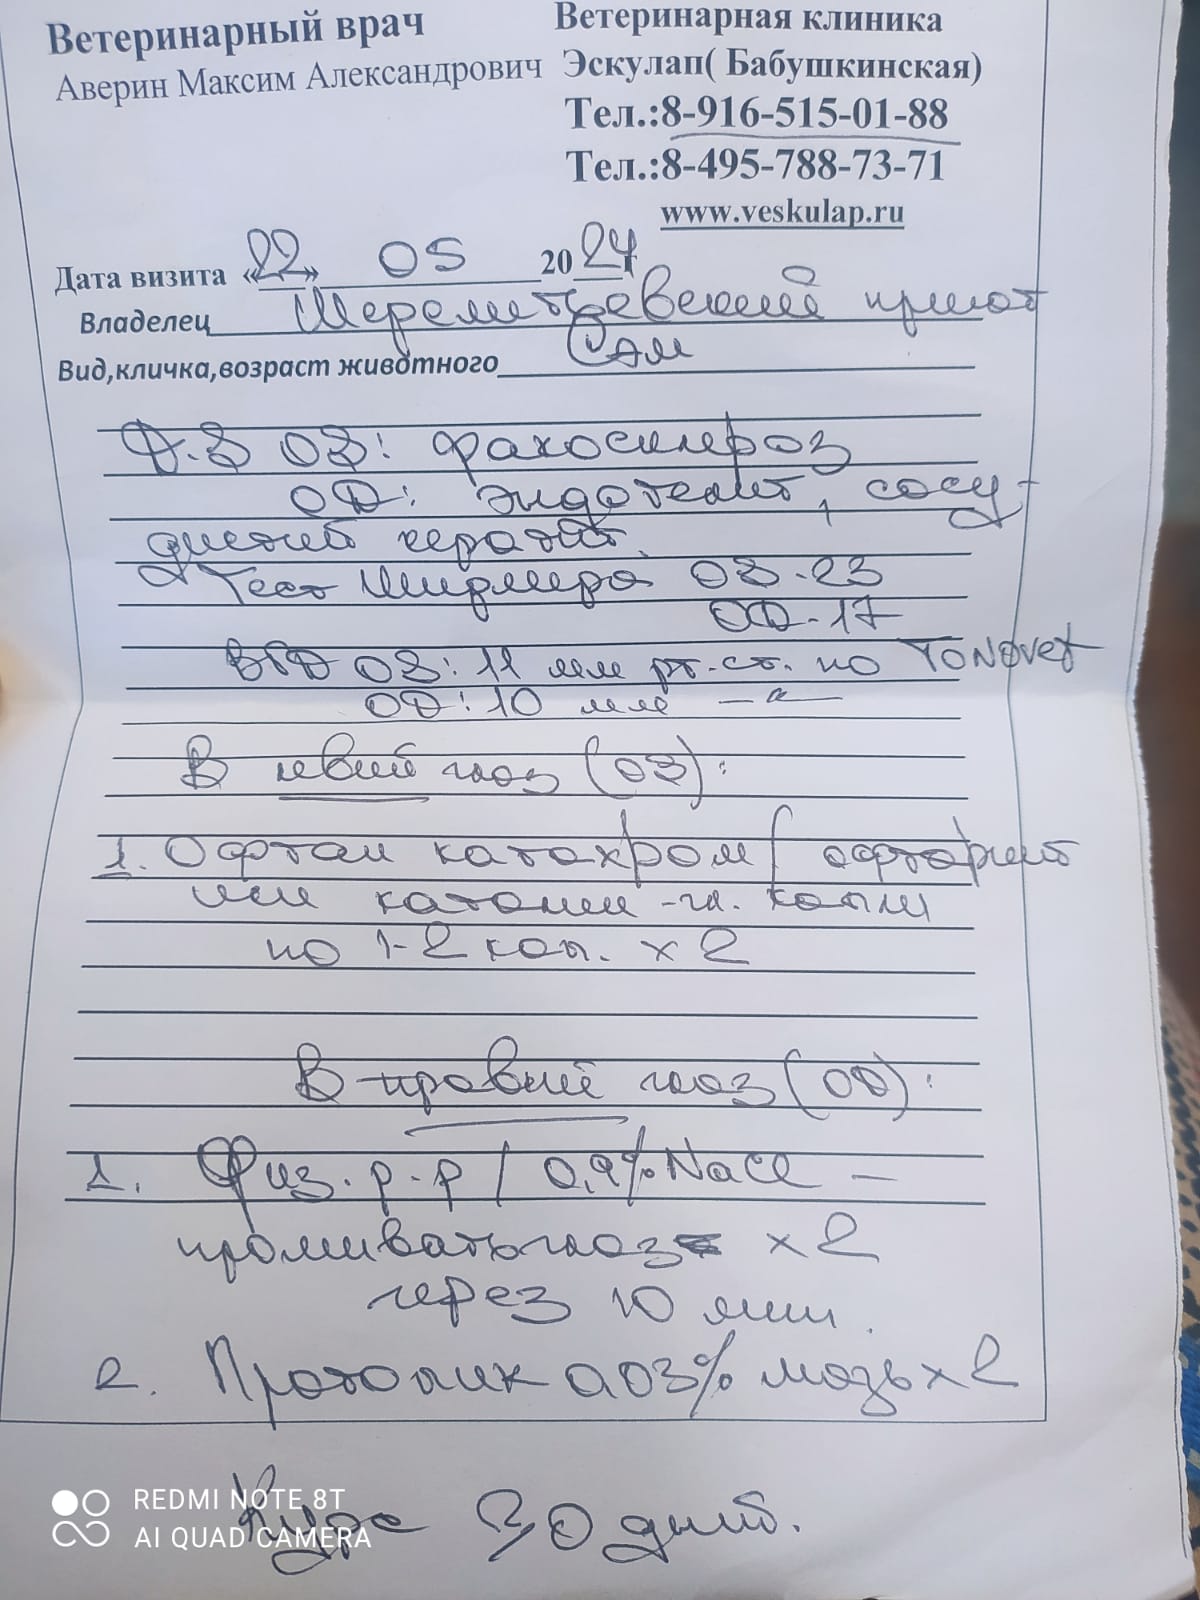 Ветеринарный врач
Аверин Максим Александрович
Ветеринарная клиника
Эскулап( Бабушкинская)
Тел.:8-916-515-01-88
Тел.:8-495-788-73-71
www.veskulap.ru
Дата визита «22» 05 2024
Владелец Шереметьевский приют
Вид,кличка,возраст животного Сэм
Д.З ОЗ: факосклероз
ОД: эндотелит, сосу-
дистый кератит.
Тест Ширмера ОЗ-23
ОД-17
ВГД ОЗ: 11 мм рт.ст. по TONOVet
ОД: 10 мм —"—
В левый глаз (ОЗ):
1. Офтан катахром / офтаринт
или каталин -гл. капли
по 1-2 кап. х 2
В правый глаз (ОD):
1. Физ. р-р / 0,9% NaCl —
промывать глаз х 2
через 10 мин.
2. Протопик 0,03% мазь х 2
Курс 30 дней.
REDMI NOTE 8T
AI QUAD CAMERA